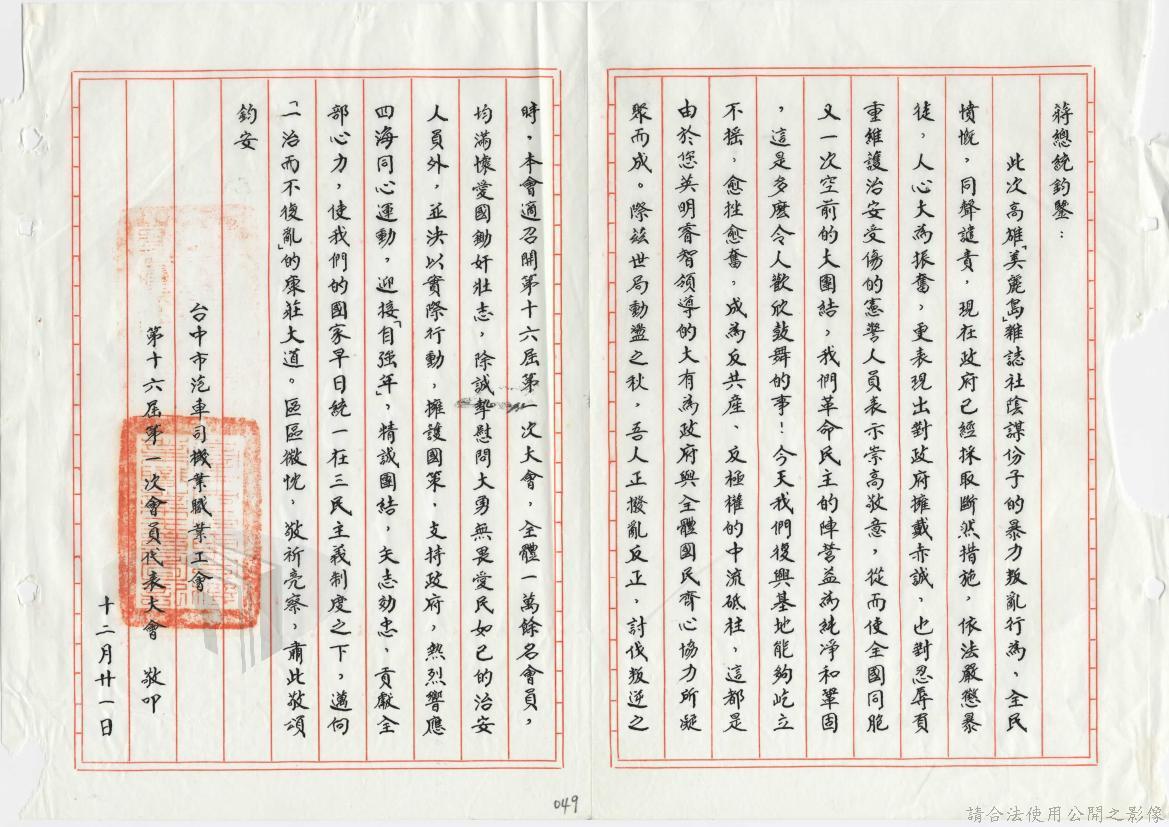 蔣總統鈞鑒：
此次高雄「美麗島」雜誌社陰謀份子的暴力叛亂行為，全民
憤慨，同聲譴責，現在政府已經採取斷然措施，依法嚴懲暴
徒，人心大為振奮，更表現出對政府擁戴赤誠，也對忍辱負
重維護治安受傷的憲警人員表示崇高敬意，從而使全國同胞
又一次空前的大團結，我們革命民主的陣營益為純淨和鞏固
，這是多麼令人歡欣鼓舞的事！今天我們復興基地能夠屹立
不搖，愈挫愈奮，成為反共產、反極權的中流砥柱，這都是
由於您英明睿智領導的大有為政府與全體國民齊心協力所凝
聚而成。際茲世局動盪之秋，吾人正撥亂反正，討伐叛逆之
時，本會適召開第十六屆第一次大會，全體一萬餘名會員，
均滿懷愛國鋤奸壯志，除誠摯慰問大勇無畏愛民如己的治安
人員外，並決以實際行動，擁護國策，支持政府，熱烈響應
四海同心運動，迎接「自強年」，精誠團結，矢志効忠，貢獻全
部心力，使我們的國家早日統一在三民主義制度之下，邁向
「一治而不復亂」的康莊大道。區區微忱，敬祈亮察，肅此敬頌
鈞安
台中市汽車司機業職業工會
第十六屆第一次會員代表大會　敬叩
十二月廿一日
049
請合法使用公開之影像